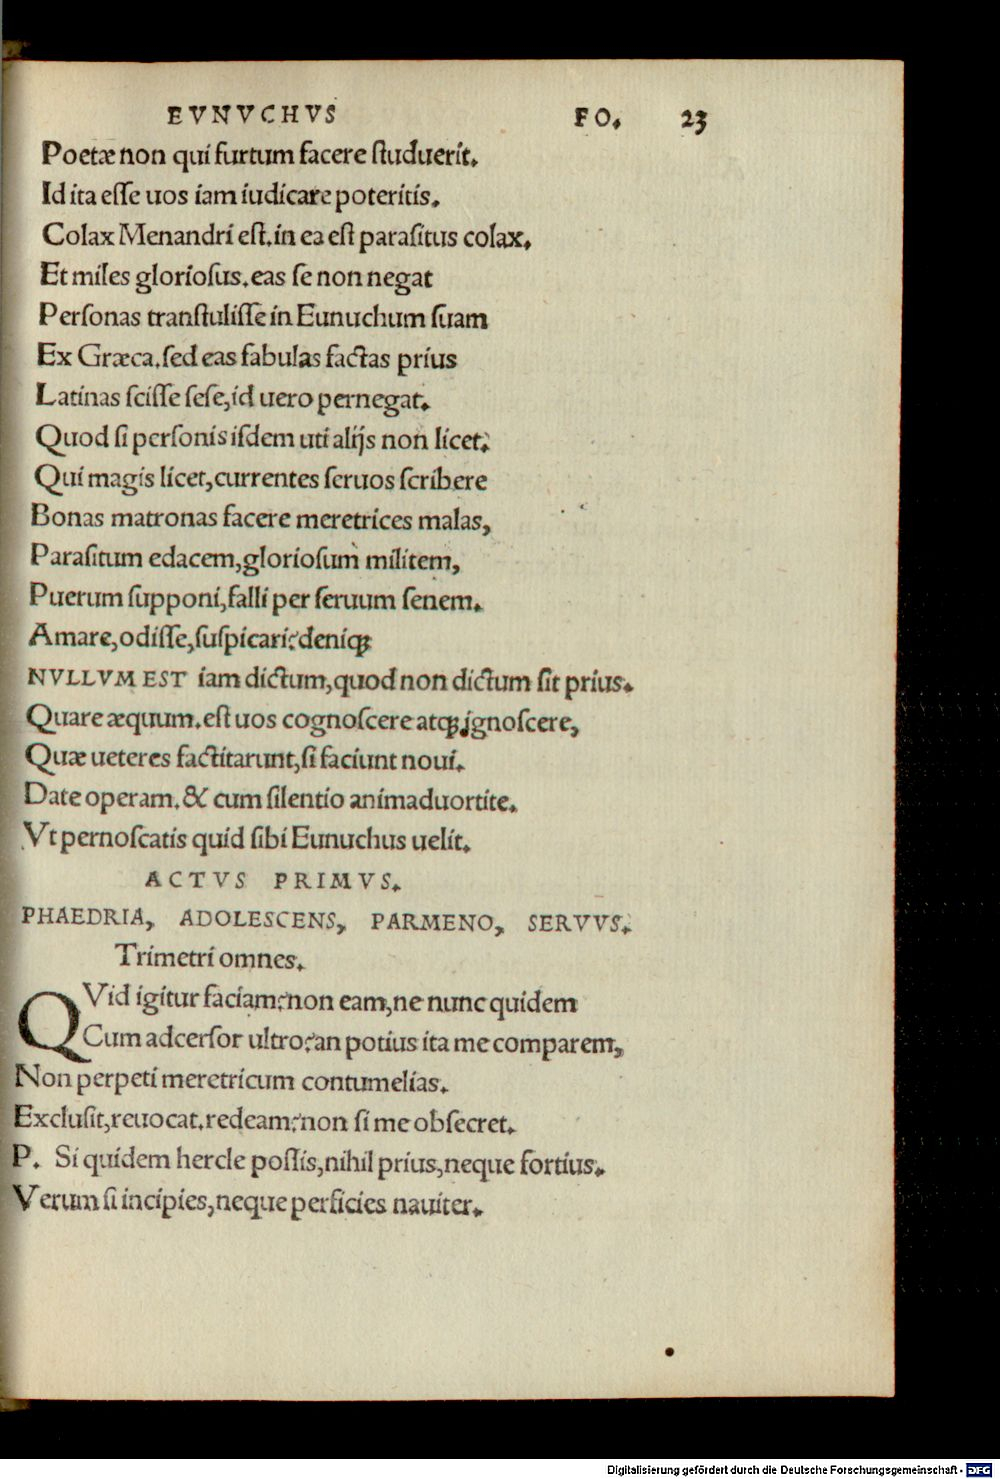 EVNVCHVS FO. 23
Poetæ non qui furtum facere ſtuduerit.
Id ita eſſe uos iam iudicare poteritis.
Colax Menandri eſt.in ea eſt paraſitus colax,
Et miles glorioſus.eas ſe non negat
Perſonas tranſtuliſſe in Eunuchum ſuam
Ex Græca.ſed eas fabulas factas prius
Latinas ſciſſe ſeſe,id uero pernegat.
Quod ſi perſonis iſdem uti alijs non licet:
Qui magis licet,currentes ſeruos ſcribere
Bonas matronas facere meretrices malas,
Paraſitum edacem,glorioſum militem,
Puerum ſupponi,falli per ſeruum ſenem.
Amare,odiſſe,ſuſpicari?deniqꝫ
NVLLVM EST iam dictum,quod non dictum ſit prius.
Quare æquum.eſt uos cognoſcere atqꝫ ignoſcere,
Quæ ueteres factitarunt,ſi faciunt noui.
Date operam.& cum ſilentio animaduortite.
Vt pernoſcatis quid ſibi Eunuchus uelit.
ACTVS PRIMVS.
PHAEDRIA, ADOLESCENS, PARMENO, SERVVS.
Trimetri omnes.
QVid igitur faciam?non eam,ne nunc quidem
Cum adcerſor ultro?an potius ita me comparem,
Non perpeti meretricum contumelias.
Excluſit,reuocat.redeam?non ſi me obſecret.
P. Si quidem hercle poſſis,nihil prius,neque fortius.
Verum ſi incipies,neque perficies nauiter.
Digitalisierung gefördert durch die Deutsche Forschungsgemeinschaft - DFG